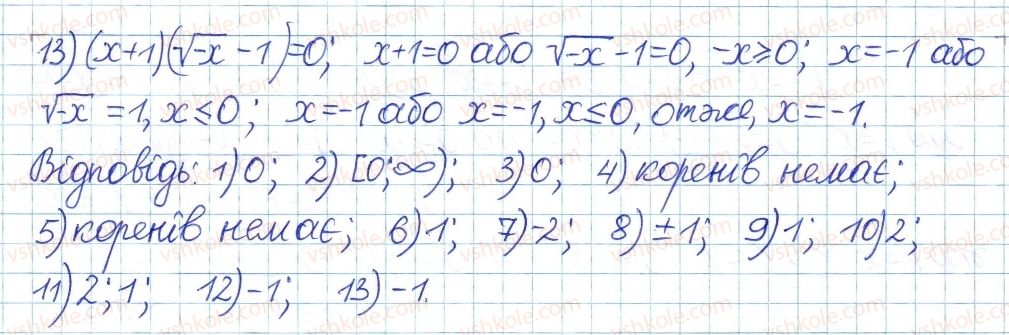 13) (x+1)(√-x -1)=0; x+1=0 або √-x -1=0, -x≥0; x=-1 або
√-x =1, x≤0; x=-1 або x=-1, x≤0, отже, x=-1.
Відповідь: 1) 0; 2) [0;∞); 3) 0; 4) коренів немає;
5) коренів немає; 6) 1; 7) -2; 8) ±1; 9) 1; 10) 2;
11) 2; 1; 12) -1; 13) -1.